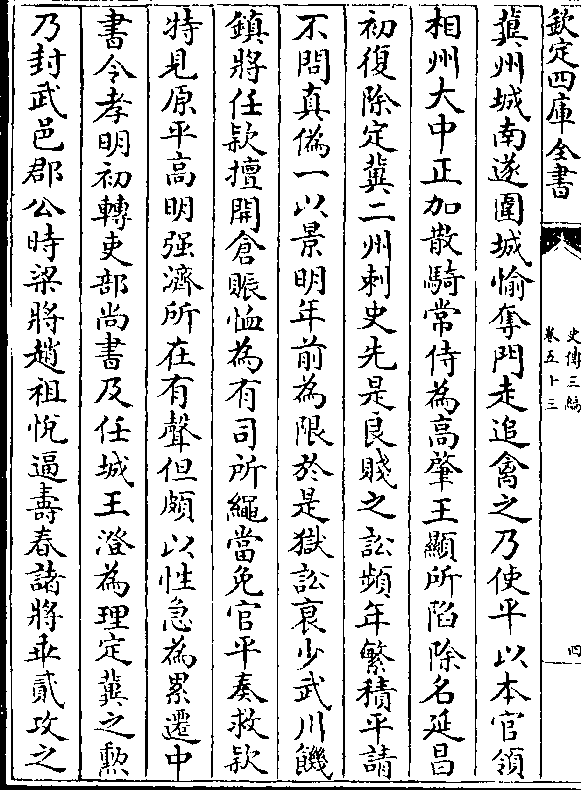 欽定四庫全書
史傳三編
卷五十三
四
冀州城南遂圍城愉奪門走追禽之乃使平以本官領
相州大中正加散騎常侍為高肇王顯所陷除名延昌
初復除定冀二州刺史先是良賤之訟頻年繁積平請
不問真偽一以景明年前為限於是獄訟衰少武川饑
鎮將任款擅開倉賑恤為有司所繩當免官平奏救款
特見原平高明强濟所在有聲但頗以性急為累遷中
書令孝明初轉吏部尚書及任城王澄為理定冀之勲
乃封武邑郡公時梁將趙祖悅逼壽春諸將乖貳攻之